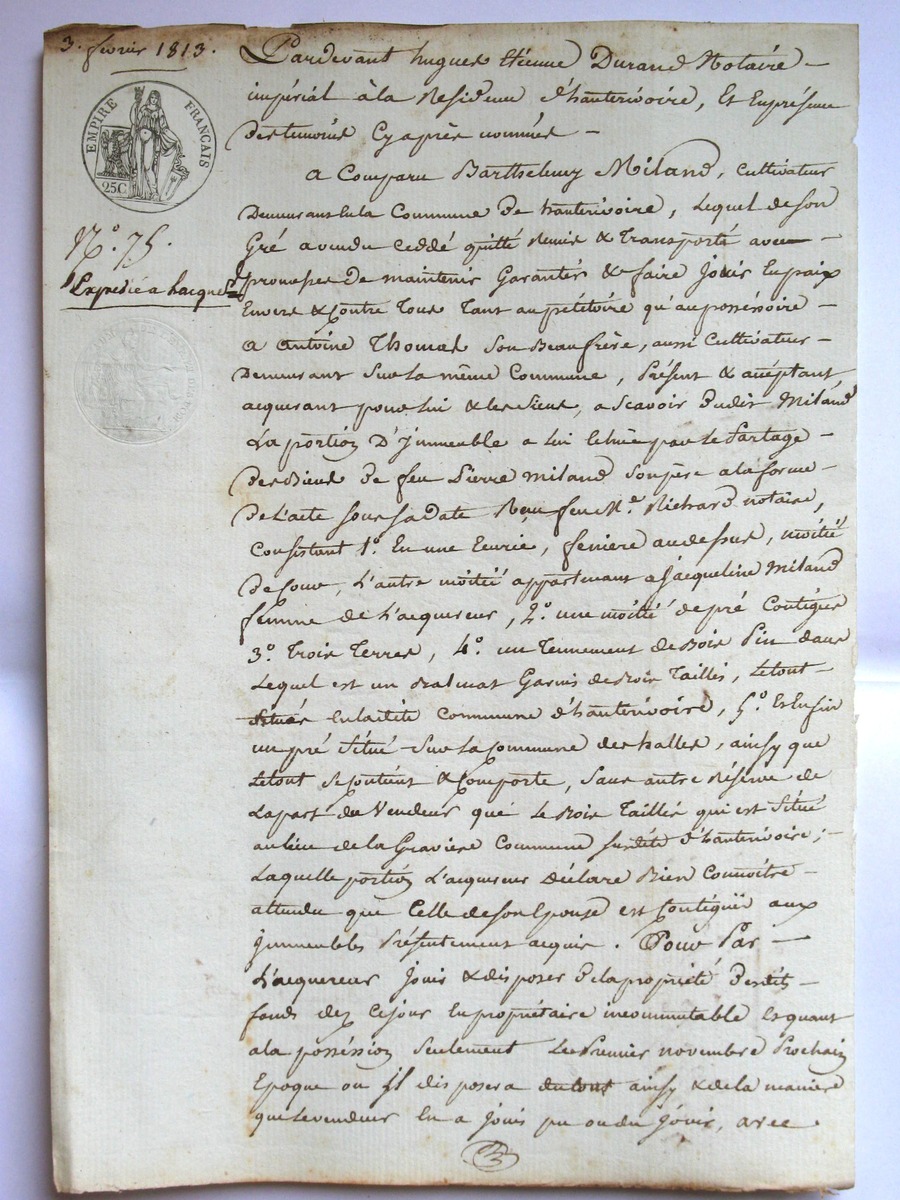 3. fevrier 1813.
EMPIRE FRANÇAIS
25C
N.° 75.
Expedié a Lacquer
Pardevant hugues Etienne Durand Notaire –
impérial à la Residence d'hauterivoire, Et En présence
des temoins Cy après nommés –
a Comparu Barthelemy Miland, Cultivateur
Demeurant En la Commune De hauterivoire, Lequel de son
Gré a vendu Ceddé quitté Remis & Transporté avec –
promesses De maintenir Garantir & faire Jouir En paix
Envers & Contre Tous Tant au pétitoire qu'au posséssoire –
a Antoine Thomas Son Beaufrère, aussi Cultivateur –
Demeurant Sur La même Commune, Présent & acceptant
acquerant pour Lui & les Siens, a Scavoir dudit Miland
La portion D'Immeuble a lui Echue par le Partage –
des Biens De feu Pierre Miland Son père a la forme –
de L'acte sous Sa date Reçu feu M.e Richard notaire,
Consistant 1.° En une Ecurie, feniere au dessus, moitié
de Cour, L'autre moitié appartenant a Jacqueline Miland
femme de L'acquereur, 2.° une moitié de pré Contigue
3.° Trois Terres, 4.° un Tennement de Bois Pin dans
Lequel est un Balmat Garnis de Bois Taillis, Le tout –
Situés En Ladite Commune d'hauterivoire, 5.° Et Enfin
un pré Situé Sur La Commune des halles, ainsy que
Le tout Se Contient & Comporte, Sans autre Réserve de
La part du Vendeur que Le Bois Taillis qui est Situé
au lieu de la Graviere Commune susdite d'hauterivoire; –
Laquelle portion L'acquereur Déclare Bien Connoitre –
attendu que Celle de Son Epouse est Contiguë aux
Immeubles Présentement acquis. Pour Par –
L'acquereur Jouir & disposer de la propriété desdits –
fonds dez Ce jour En propriétaire incommutable Et quant
a la posséssion Seulement Le Premier novembre Prochain
Epoque ou il disposera du tout ainsy & de la maniere
que Le vendeur En a Joui pu ou du Jouir, avec